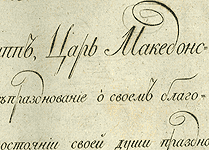 ппъ, Царь Македонс-
ъпразднование о своемъ благо-
остоянiи своей души праздно